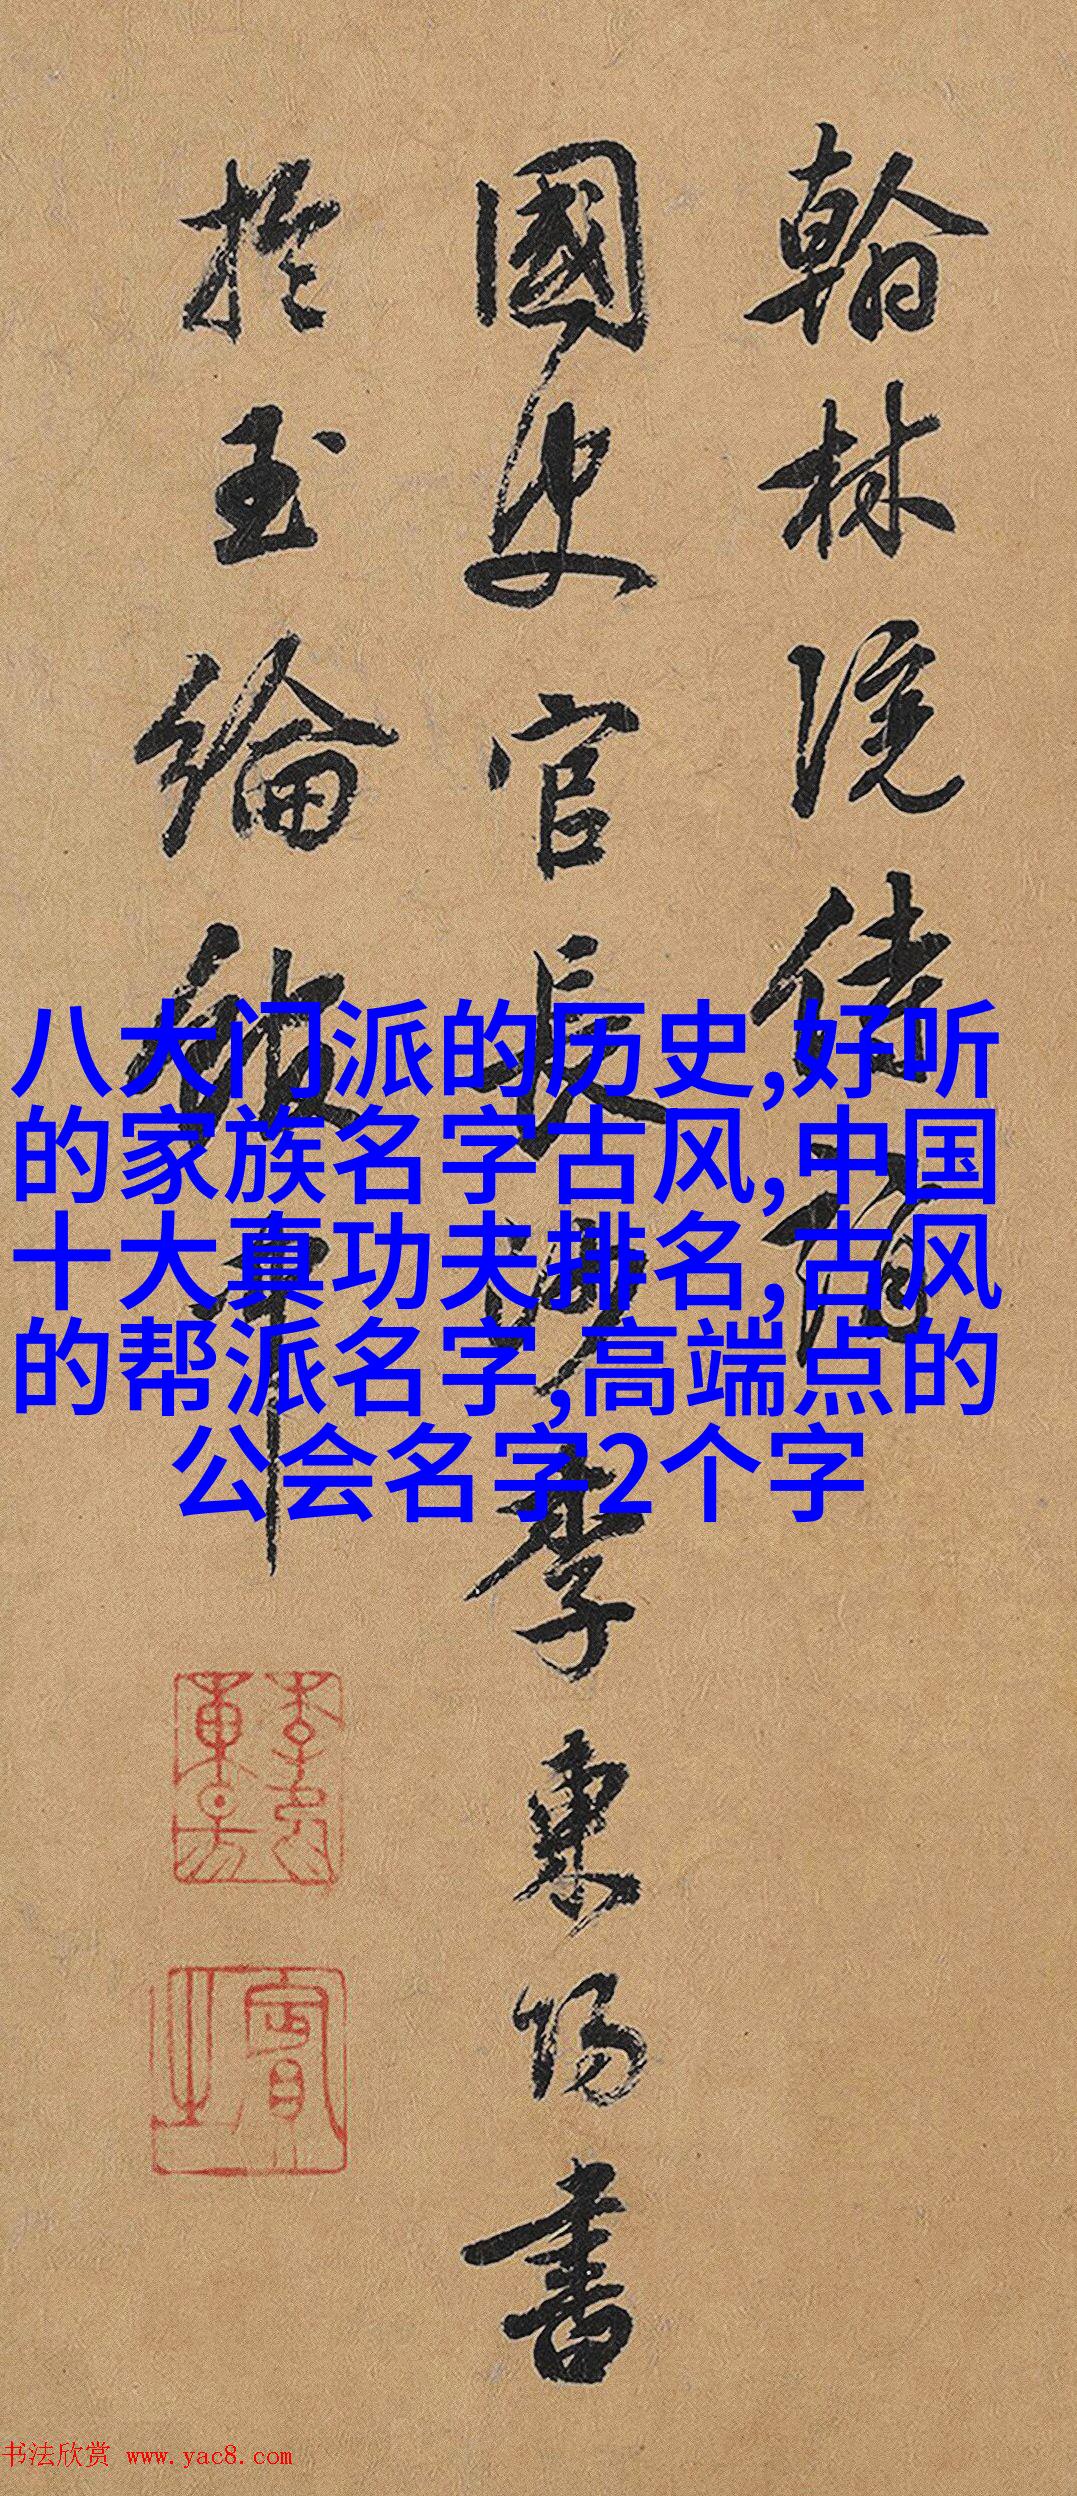 翰林院侍講
國史官長沙李東陽書
於玉綸
八大门派的历史,好听
的家族名字古风,中国
十大真功夫排名,古风
的帮派名字,高端点的
公会名字2个字
书法欣赏 www.yac8.com